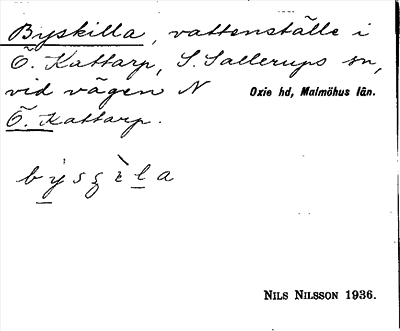 Byskilla, vattenställe i
Ö. Kattarp, S. Sallerups sn,
vid vägen N Oxie hd, Malmöhus län.
Ö. Kattarp.
NILS NILSSON 1936.